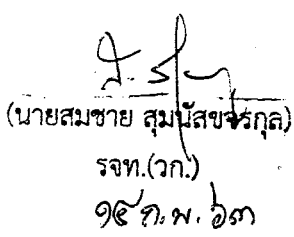 (นายสมชาย สุมนัสขจรกุล)
รจท.(วก.)
๑๔ ก.พ. ๖๓